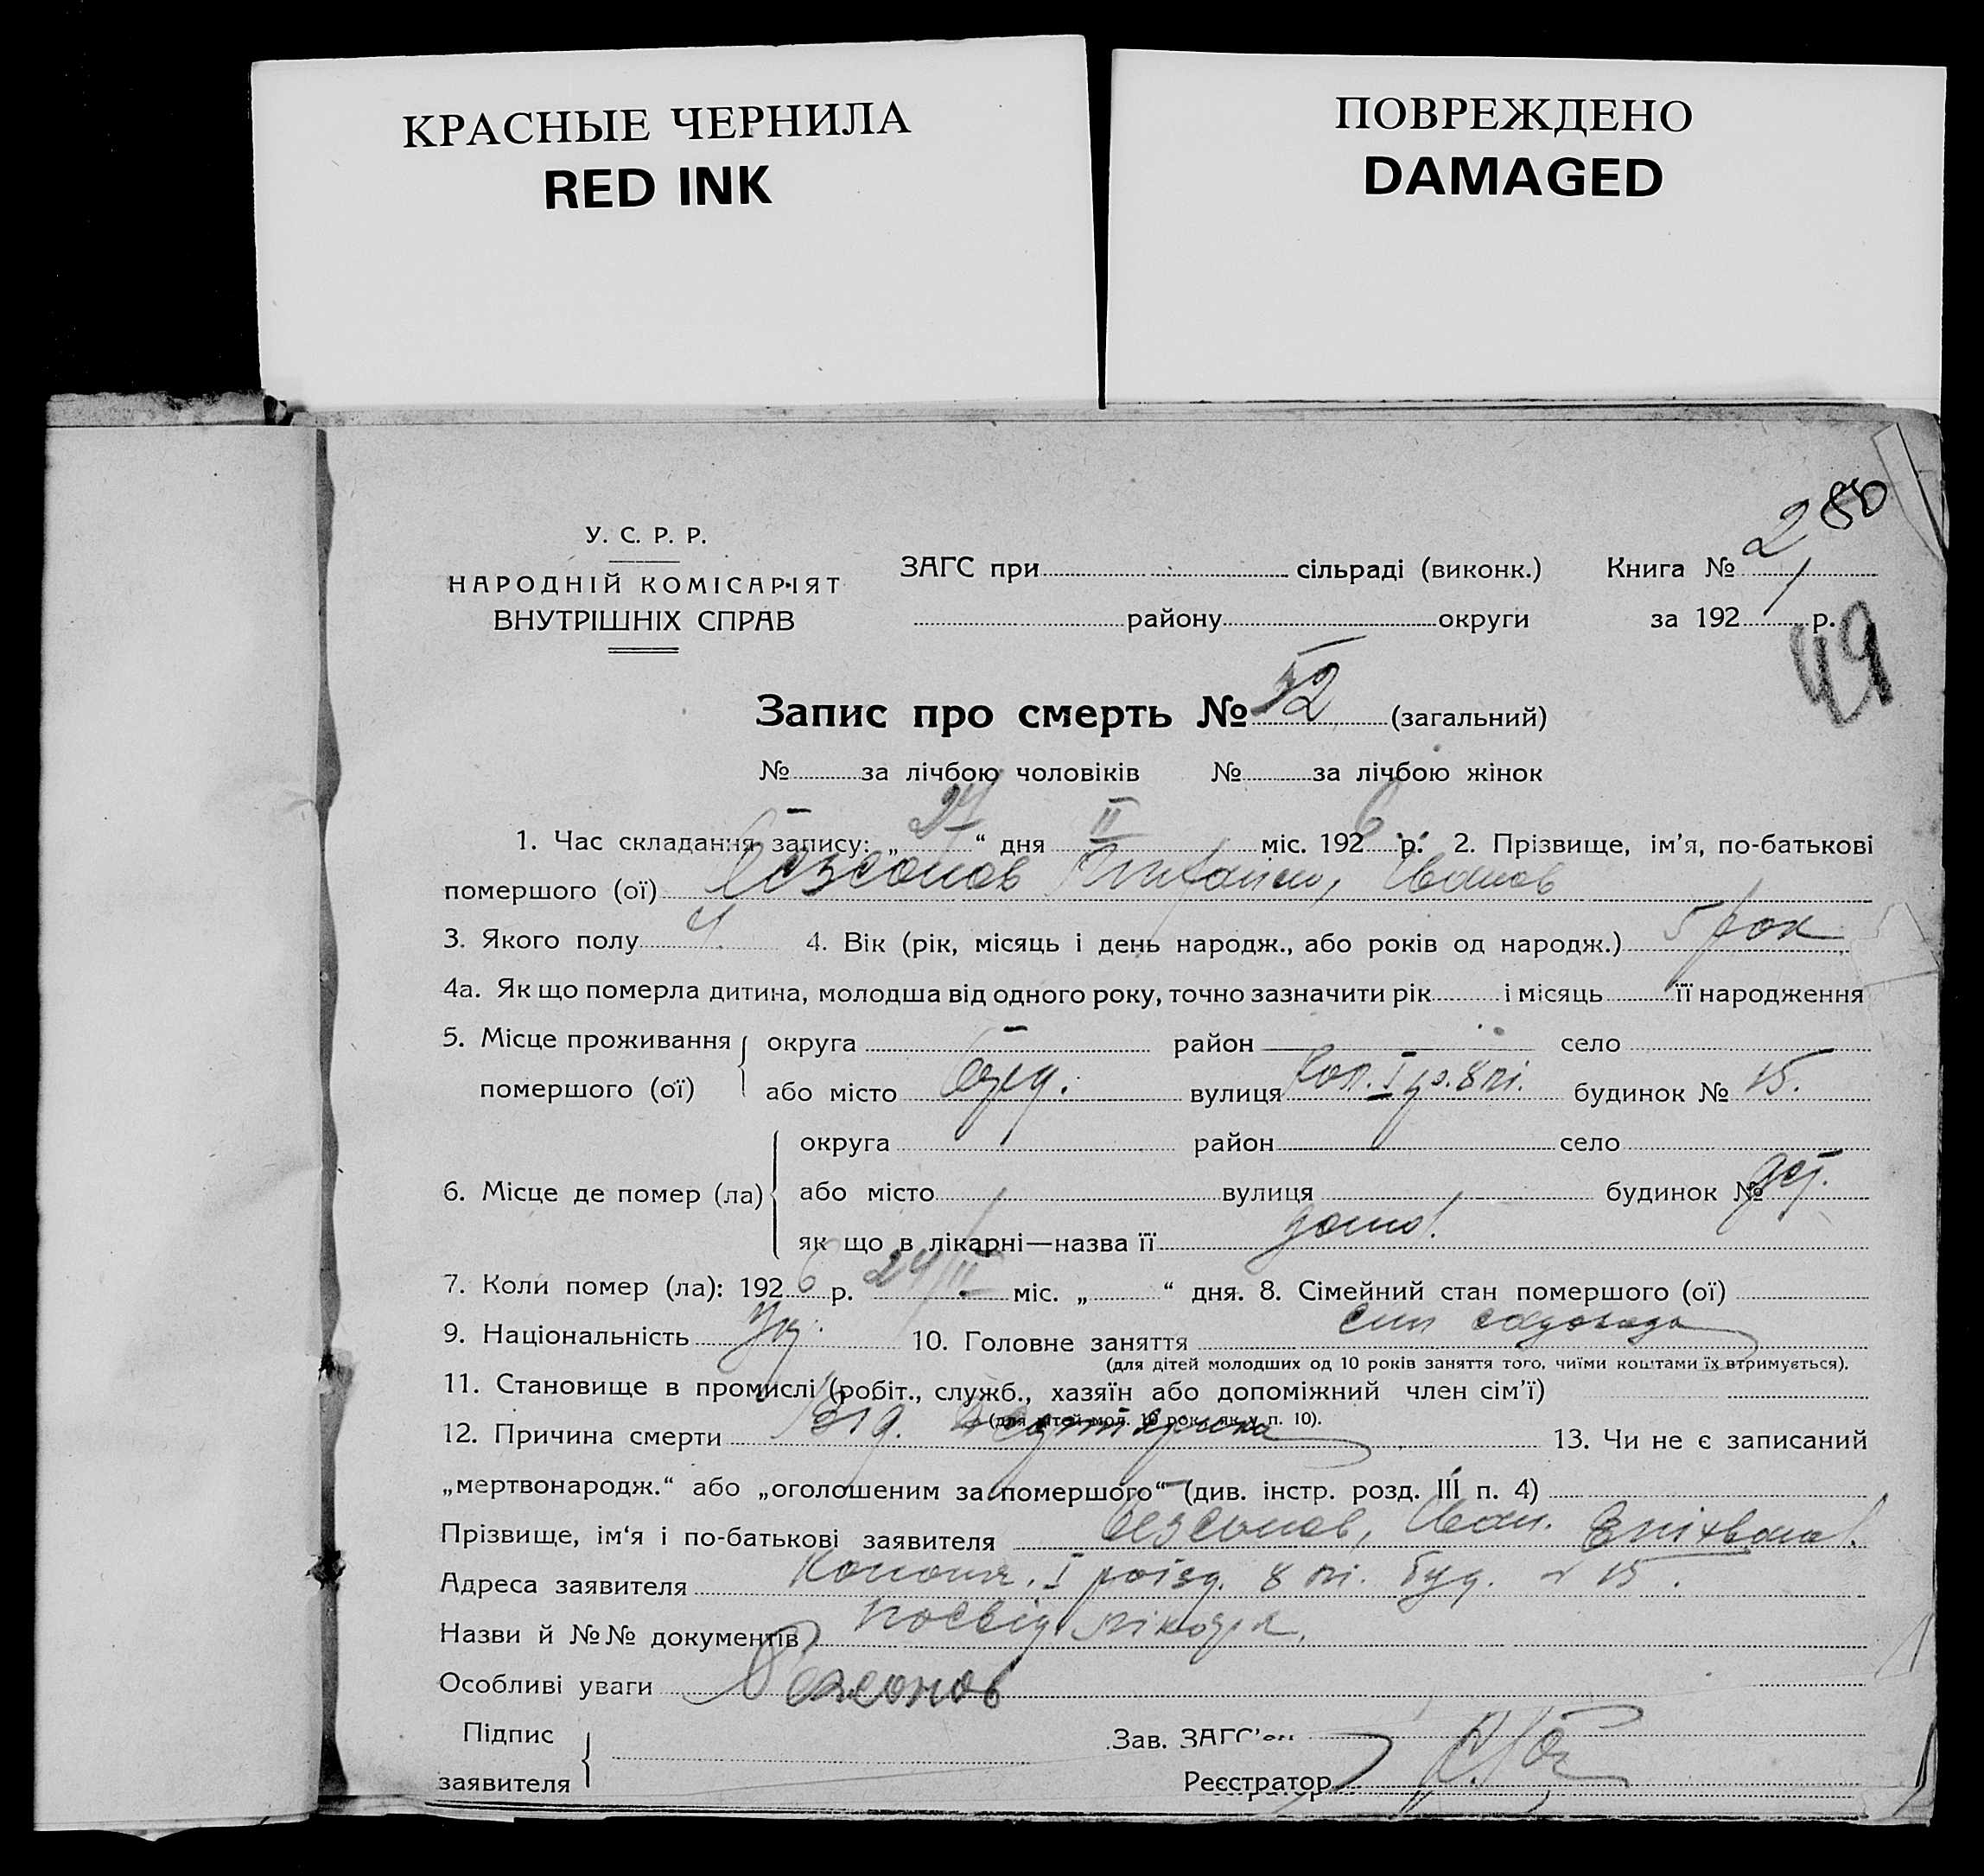 КРАСНЫЕ ЧЕРНИЛА
RED INK
ПОВРЕЖДЕНО
DAMAGED
280
У. С. Р. Р.
НАРОДНІЙ КОМІСАРІЯТ
ВНУТРІШНІХ СПРАВ
ЗАГС при сільраді (виконк.) Книга №
району округи за 192 р.
49
Запис про смерть № 52 (загальний)
№ за лічбою чоловіків № за лічбою жінок
1. Час складання запису: „ 24 “ дня II міс. 1926 р. 2. Прізвище, ім’я, по-батькові
помершого (ої) Безсонов Іванов
3. Якого полу ч. 4. Вік (рік, місяць і день народж., або років од народж.) 5 рок
4а. Як що померла дитина, молодша від одного року, точно зазначити рік і місяць її народження
5. Місце проживання округа район село
помершого (ої) або місто вулиця I р. 8 л. будинок № 15.
округа район село
6. Місце де помер (ла) або місто вулиця будинок №
як що в лікарні—назва її
7. Коли помер (ла): 1926 р. 24/II міс. „ “ дня. 8. Сімейний стан помершого (ої)
9. Національність 10. Головне заняття син
(для дітей молодших од 10 років заняття того, чиїми коштами їх втримується).
11. Становище в промислі (робіт., служб., хазяїн або допоміжний член сім’ї)
(для дітей мол. 10 рок., як у п. 10).
12. Причина смерти Від 13. Чи не є записаний
„мертвонародж.“ або „оголошеним за помершого“ (див. інстр. розд. III п. 4)
Прізвище, ім‘я і по-батькові заявителя Безсонов, Іван.
Адреса заявителя I роізд. 8 л. буд. № 15.
Назви й №№ документів посвід лікаря.
Особливі уваги Безсонов
Підпис Зав. ЗАГС’ом
заявителя Реєстратор